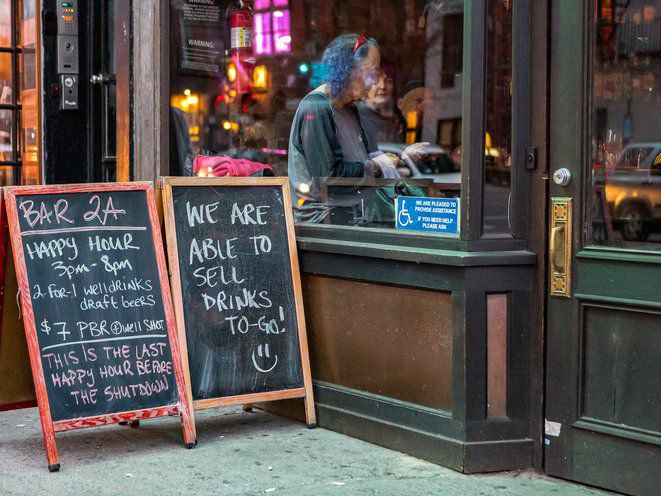 BAR 2A
HAPPY HOUR
3pm-8pm
2-for-1 well drinks
draft beers
$7 PBR @ well SHOT
THIS IS THE LAST
HAPPY HOUR BEFORE
THE SHUTDOWN
WE ARE
ABLE TO
SELL
DRINKS
TO-GO!
WARNING
WARNING:
WE ARE PLEASED TO
PROVIDE ASSISTANCE
IF YOU NEED HELP
PLEASE ASK